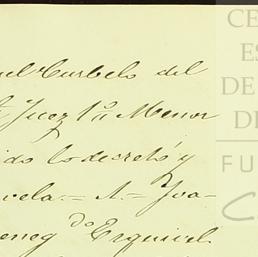 uel Curbelo del
Juez 1º Menor
ido lo decretó y
vela.= A.= Joa-
eneg do Esquivel
CE
ES
DE
DI
FU
C